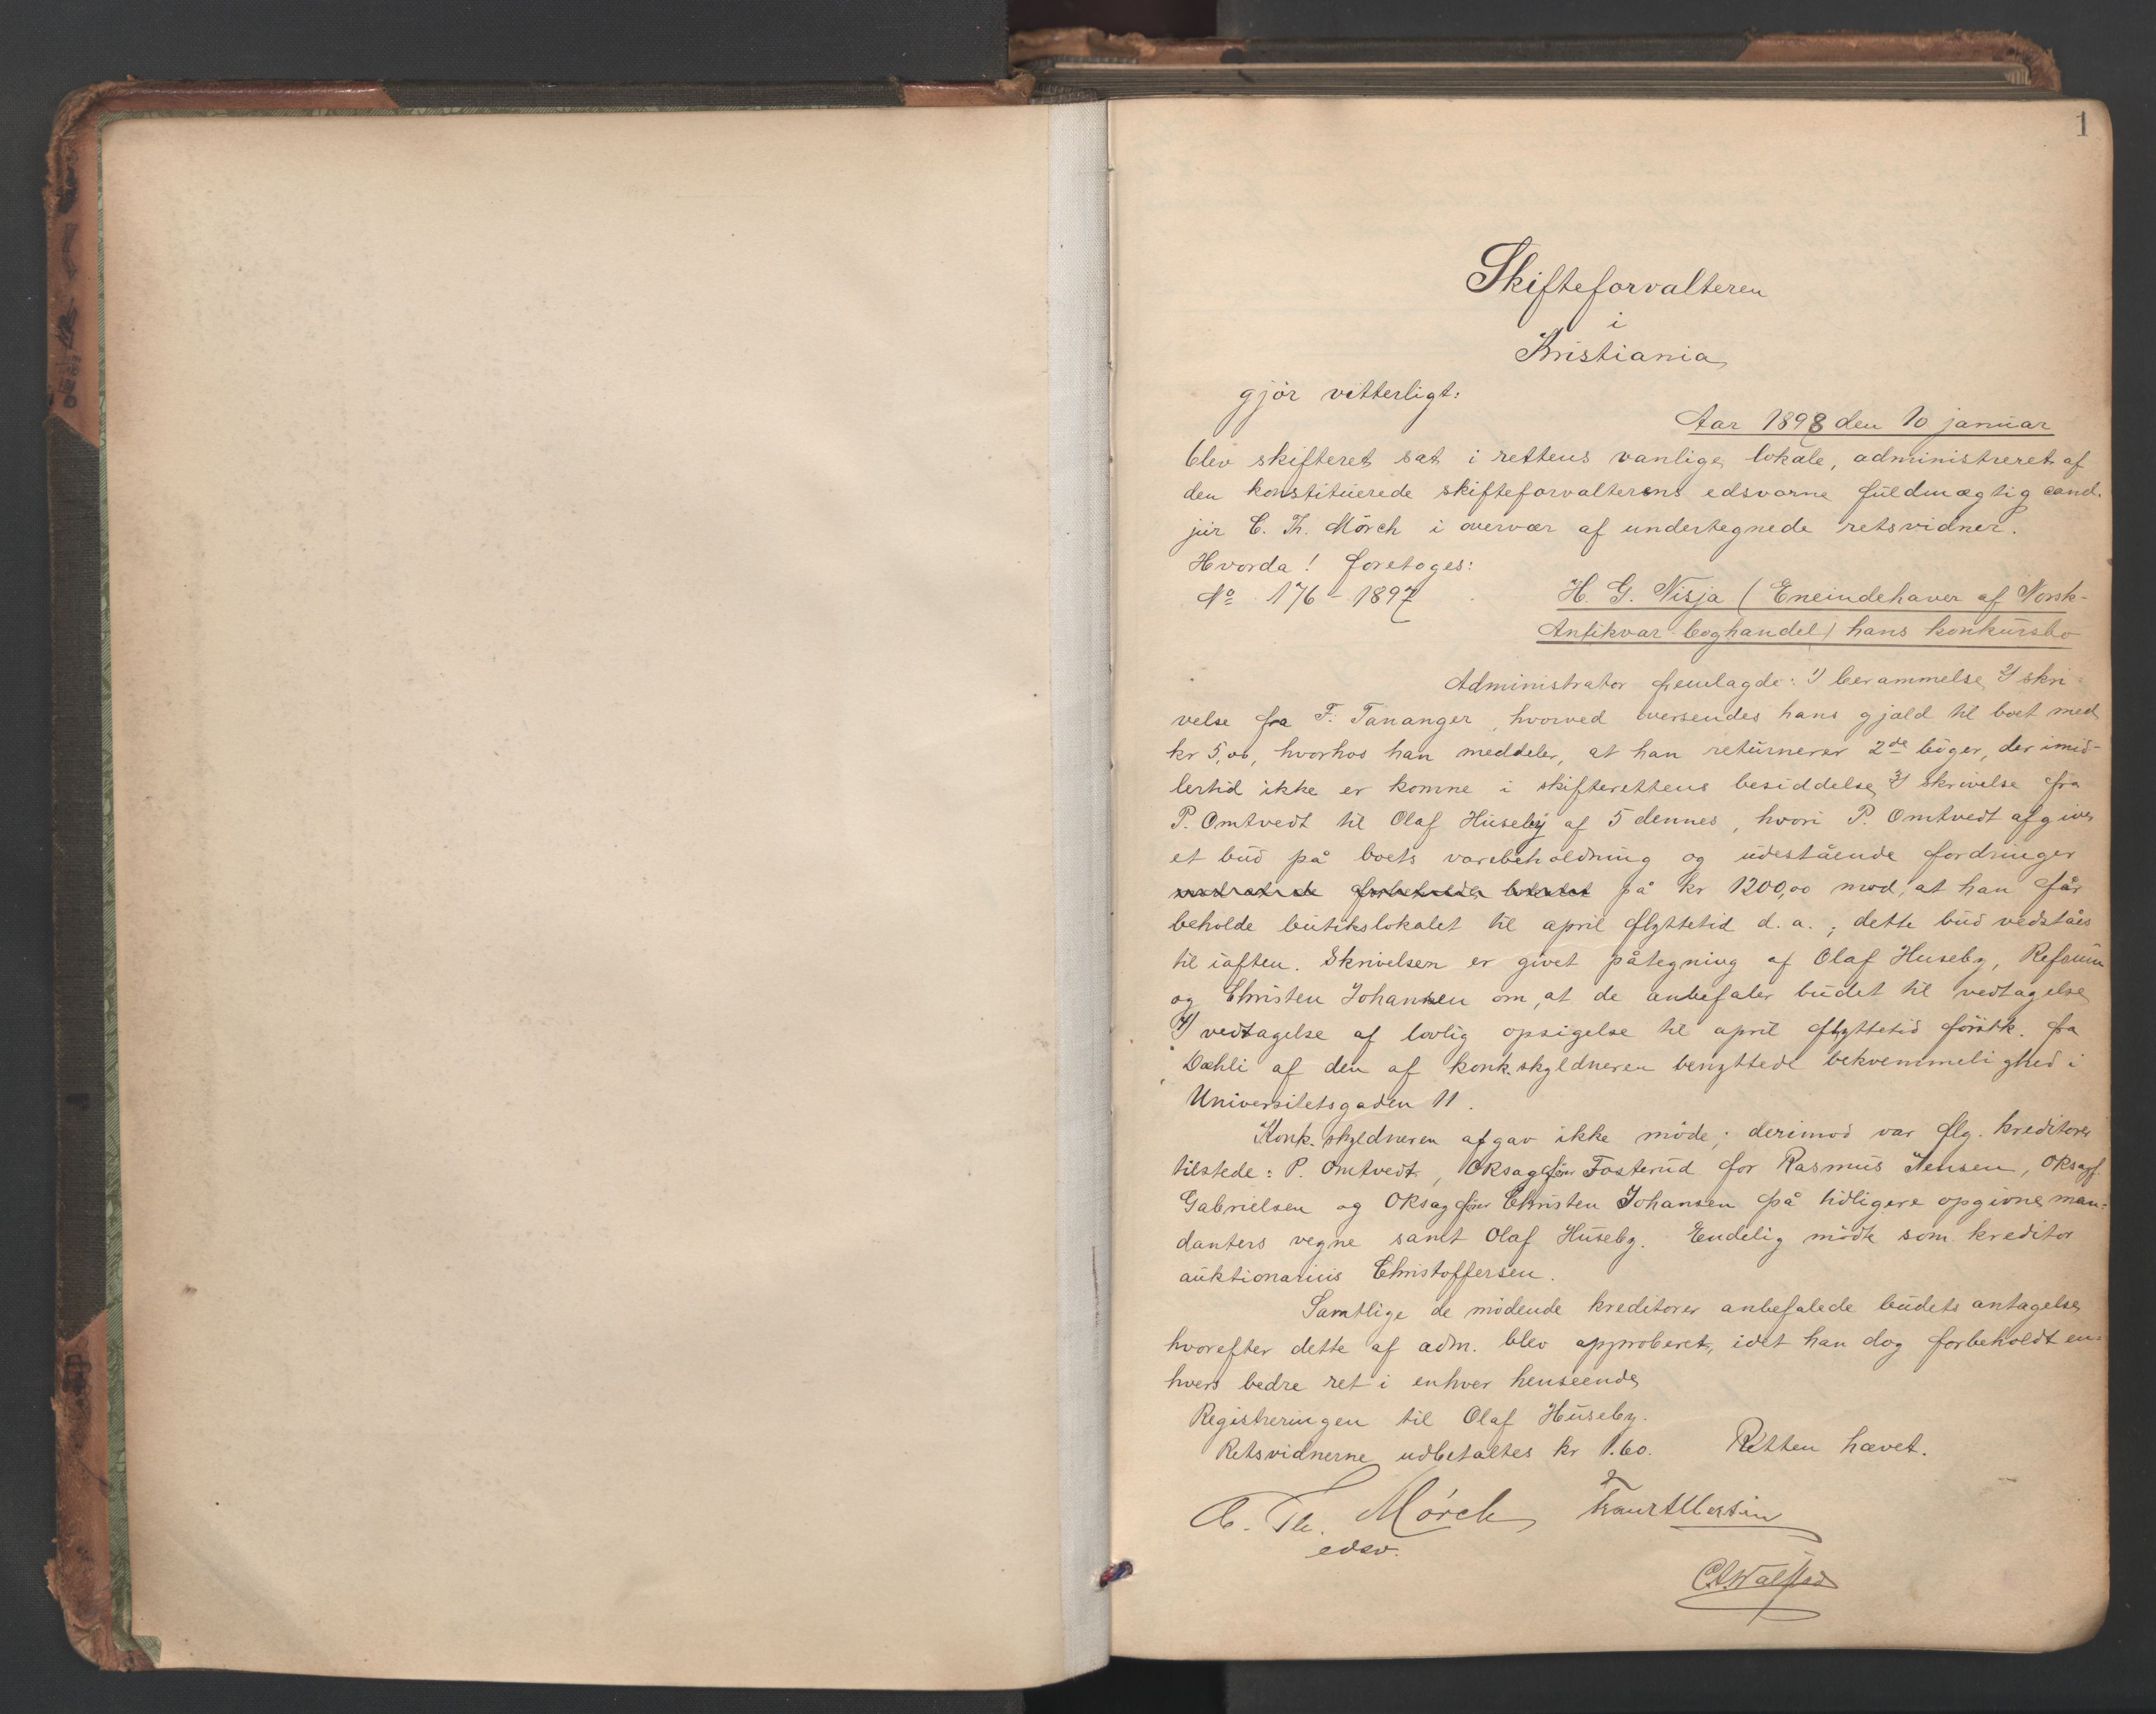 1
Skifteforvalteren
i
Kristiania
gjör vitterligt:
Aar 1898 den 10 januar
blev skifteret sat i rettens vanlige lokale, administreret af
den konstituerede skifteforvalterens edsvorne fuldmægtig cand.
jur C. Th. Mörch i overvær af undertegnede retsvidner.
Hvorda! foretoges:
No 176 - 1897
H. G. Nisja (Eneindehaver af Norsk-
Antikvar boghandel) hans konkursbo
Administrator fremlagde: 1) berammelse 2) skri-
velse fra F. Tananger, hvorved oversendes hans gjæld til boet med
kr 5,00, hvorhos han meddeler, at han returnerer 2de böger, der imid-
lertid ikke er komne i skifterettens besiddelse 3) skrivelse fra
P. Omtvedt til Olaf Huseby af 5 dennes, hvori P. Omtvedt afgiver
et bud på boets varebeholdning og udestående fordringer
på kr 1200,00 mod, at han får
beholde butikslokalet til april flyttetid d. a.; dette bud vedståes
til iaften. Skrivelsen er givet påtegning af Olaf Huseby,
og Christen Johansen om, at de anbefaler budet til vedtagelse
4) vedtagelse af lovlig opsigelse til april flyttetid fra
Dæhli af den af konk.skyldneren benyttede bekvemmelighed i
Universitetsgaden 11.
Konk.skyldneren afgav ikke möde; derimod var flg. kreditorer
tilstede: P. Omtvedt, Oksagförer Fosterud for Rasmus Jensen, Oksagf.
Gabrielsen og Oksagförer Christen Johansen på tidligere opgivne man-
danters vegne samt Olaf Huseby. Endelig mödte som kreditor
auktionarius Christoffersen.
Samtlige de mödende kreditorer anbefalede budets antagelse,
hvorefter dette af adm. blev approberet, idet han dog forbeholdt en-
hvers bedre ret i enhver henseende,
Registreringen til Olaf Huseby.
Retsvidnerne udbetaltes kr 1.60. Retten hævet.
C. Th. Mörch
edsv.